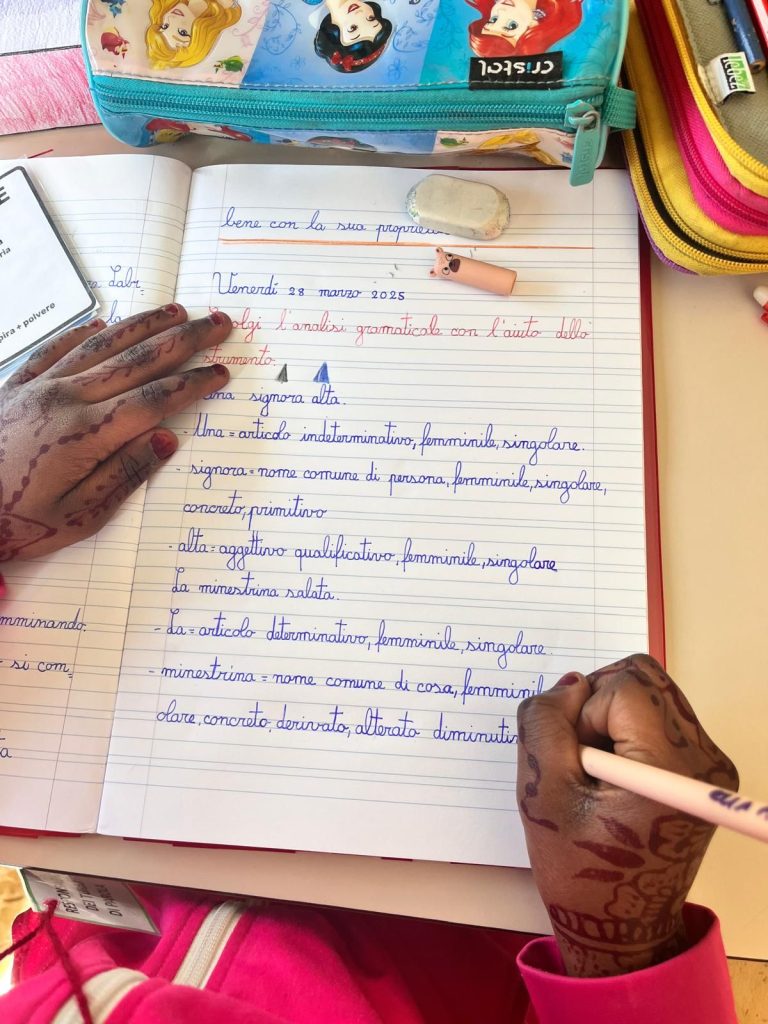 cristal
bene con la sua
Venerdí 28 marzo 2025
l'analisi gramaticale con l'aiuto dello
strumento.
signora alta.
- Una = articolo indeterminativo, femminile, singolare.
- signora = nome comune di persona, femminile, singolare,
concreto, primitivo
- alta = aggettivo qualificativo, femminile, singolare
La minestrina salata.
- La = articolo determinativo, femminile, singolare.
- minestrina = nome comune di cosa,
olare, concreto, derivato, alterato
E
ria
pira + polvere
la
mminando.
- si com=
ta
DI PADOVA